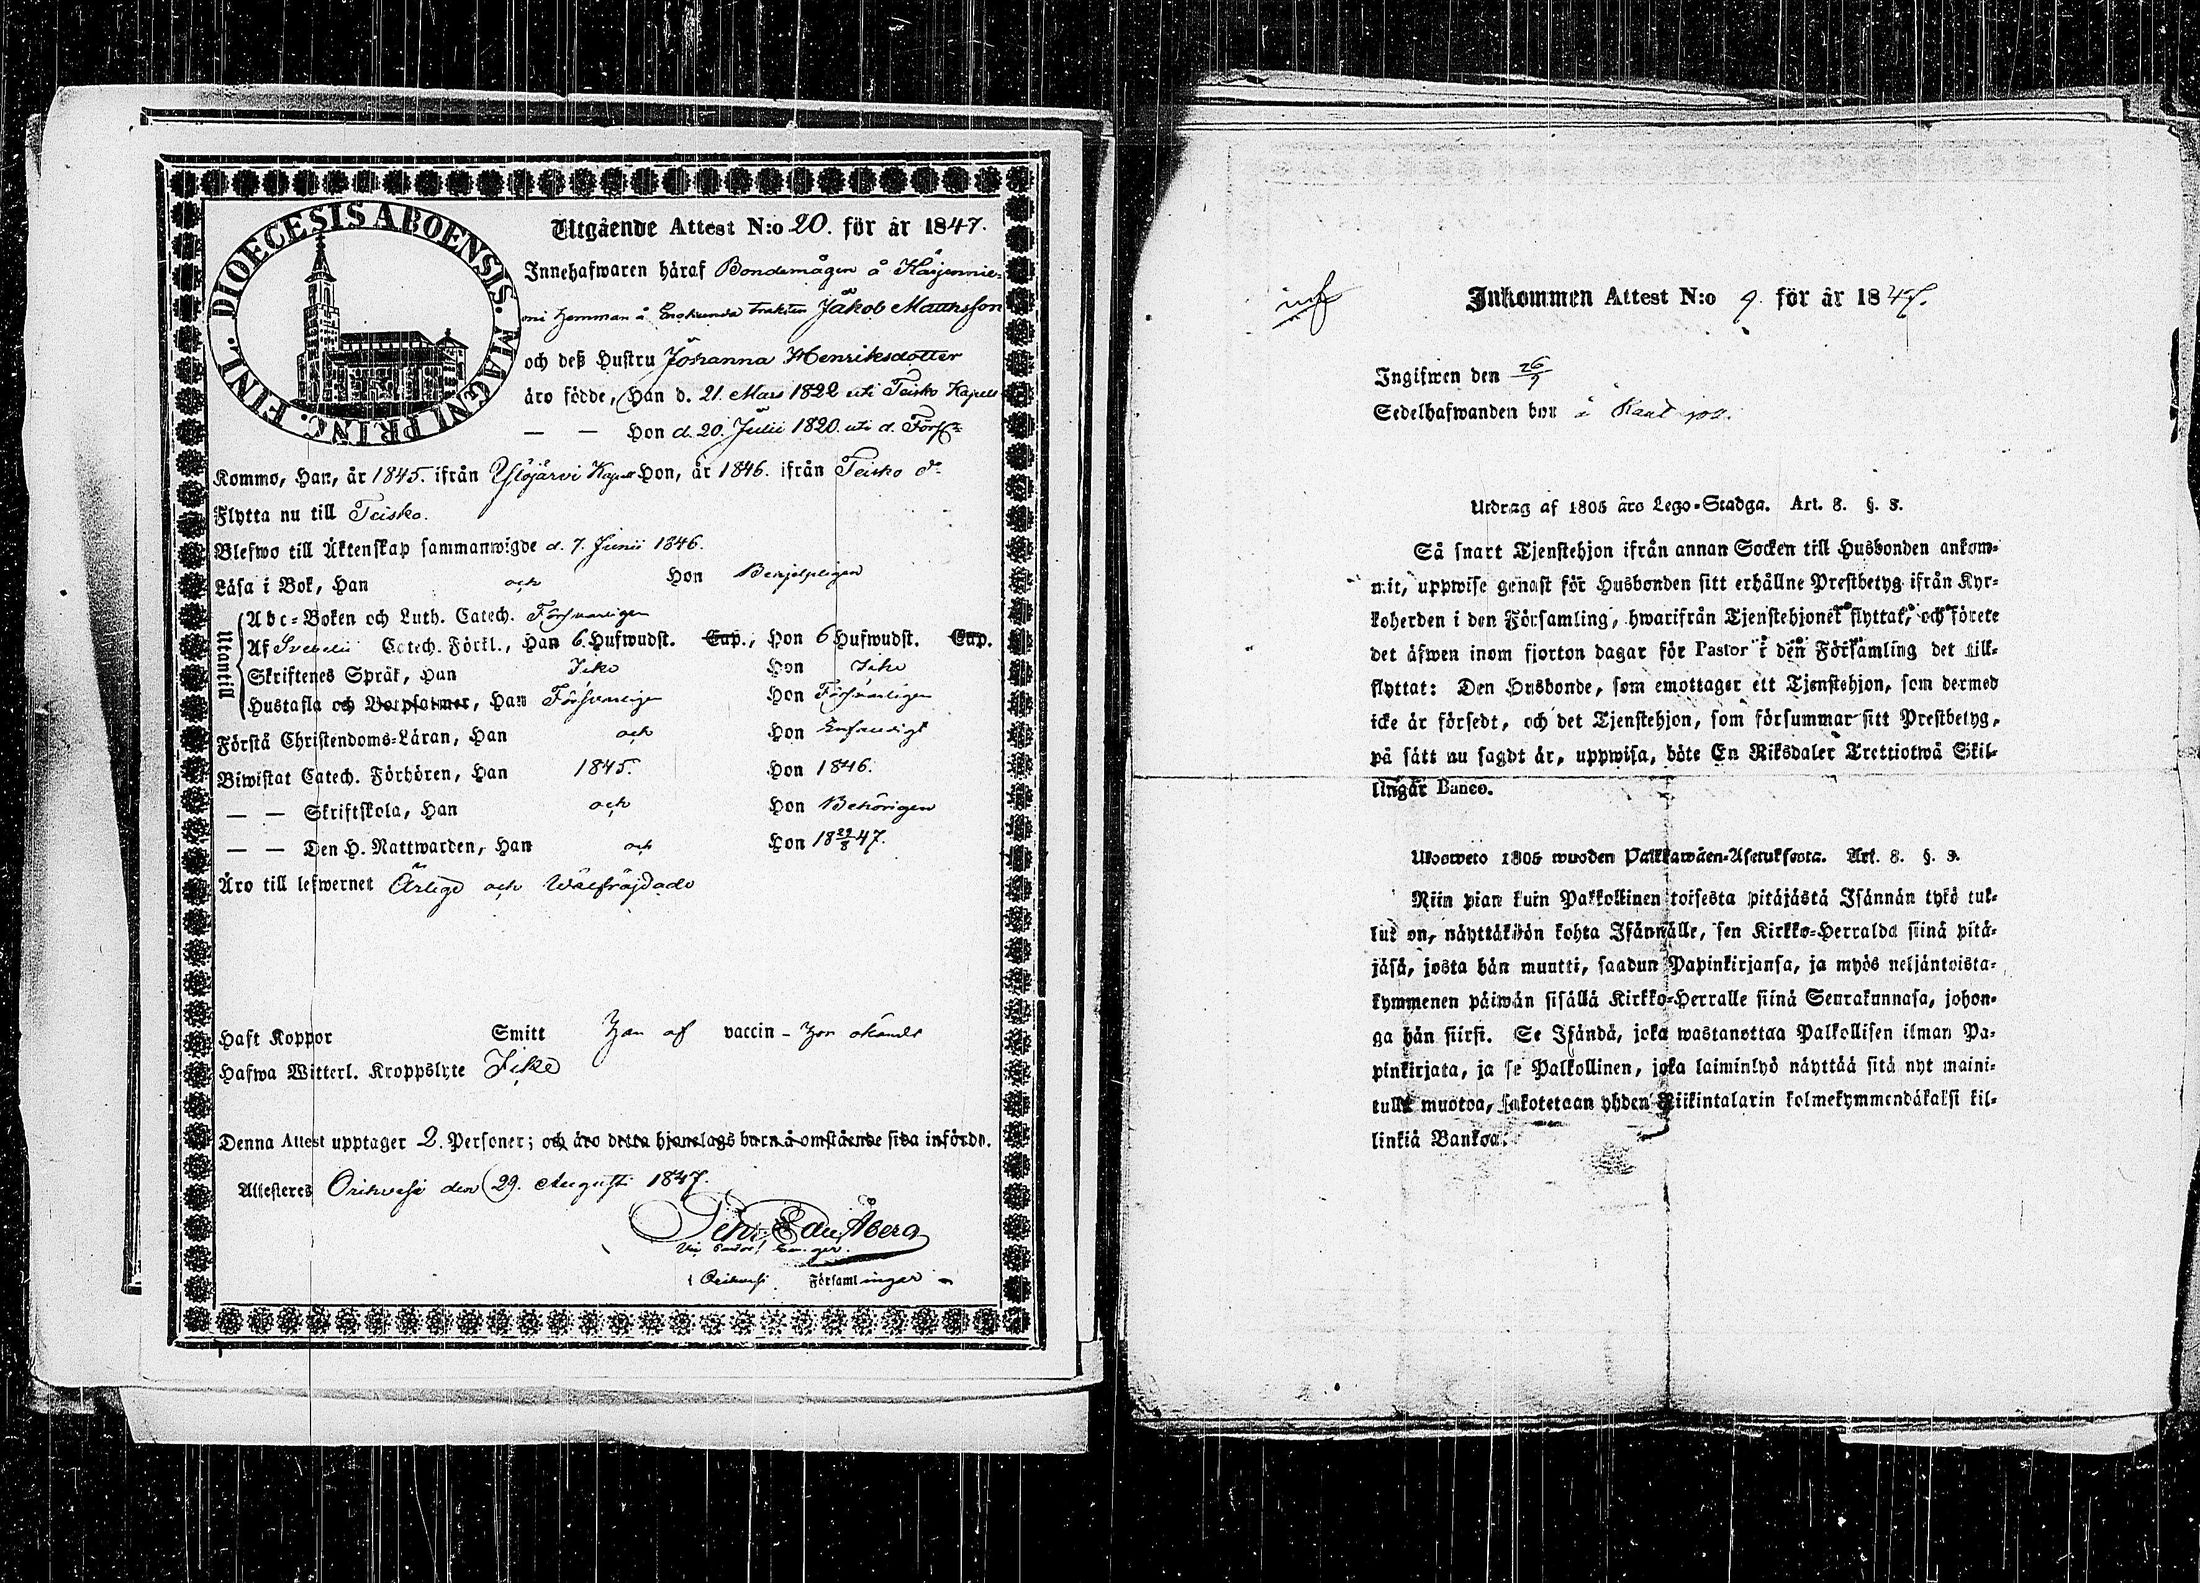 DIOECESIS ABOENSIS. MAGNI PRINC. FINL.
Utgående Attest N:o 20. för år 1847.
Innehafwaren håraf Bondemågen å
hemman å trakten Jakob Mattsson
och deß Hustru Johanna Henriksdotter
åro födde, Han d. 21. Mars 1822 uti Teisko Kapell
— — Hon d. 20. Julii 1820. uti d. Förs:
Kommo, Han, år 1845. ifrån Ylöjärvi Kapell Hon, år 1846. ifrån Teisko d:o
Flytta nu till Teisko.
Blefwo till Äktenskap sammanwigde d. 7. Junii 1846.
Läsa i Bok, Han och Hon Behjelpligen
Utantill
Abc-Boken och Luth. Catech. Försvarligen
Af Svebelii Catech. Förkl., Han 6 Hufwudst. Cap., Hon 6 Hufwudst. Cap.
Skriftenes Språk, Han Icke Hon Icke
Hustafla och Botpsalmer, Han Försvarligen Hon Försvarligen
Förstå Christendoms-Läran, Han och Hon Enfaldigt
Biwistat Catech. Förhören, Han 1845. Hon 1846.
— — Skriftskola, Han och Hon Behörigen
— — Den H. Nattwarden, Han och Hon 18 29/8 47.
Äro till lefwernet Ärlige och Wälfräjdade
Haft Koppor Smitt Han af vaccin - Hon okändt
Hafwa Witterl. Kroppslyte Icke
Denna Attest upptager 2. Personer; och äro detta hjonelags barn å omstående sida införde.
Attesteres Orihvesi den 29. Augusti 1847.
Åberg
i Orihvesi Församlingar
Inkommen Attest N:o 9. för år 1847.
Ingifwen den 26/9
Sedelhafwanden bor å
Utdrag af 1805 års Lego-Stadga. Art. 8. §. 3.
Så snart Tjenstehjon ifrån annan Socken till Husbonden ankom-
mit, uppwise genast för Husbonden sitt erhållne Prestbetyg ifrån Kyr-
koherden i den Församling, hwarifrån Tjenstehjonet flyttat, och förete
det äfwen inom fjorton dagar för Pastor i den Församling det till-
flyttat: Den Husbonde, som emottager ett Tjenstehjon, som dermed
icke är försedt, och det Tjenstehjon, som försummar sitt Prestbetyg,
på sätt nu sagdt är, uppwisa, böte En Riksdaler Trettiotwå Skil-
lingar Banco.
Ulosweto 1805 wuoden Palkkawäen-Asetuksesta. Art. 8. §. 3.
Niin pian kuin Palkollinen toisesta pitäjästä Isännän tykö tul-
lut on, näyttäköön kohta Isännälle, sen Kirkko-Herralda siinä pitä-
jäsä, josta hän muutti, saadun Papinkirjansa, ja myös neljäntoista-
kymmenen päiwän sisällä Kirkko-Herralle siinä Seurakunnasa, johon-
ga hän siirsi. Se Isändä, joka wastanottaa Palkollisen ilman Pa-
pinkirjata, ja se Palkollinen, joka laiminlyö näyttää sitä nyt maini-
tulla muotoa, sakotetaan yhden Riikintalarin kolmekymmendäkaksi kil-
linkiä Bankoa.